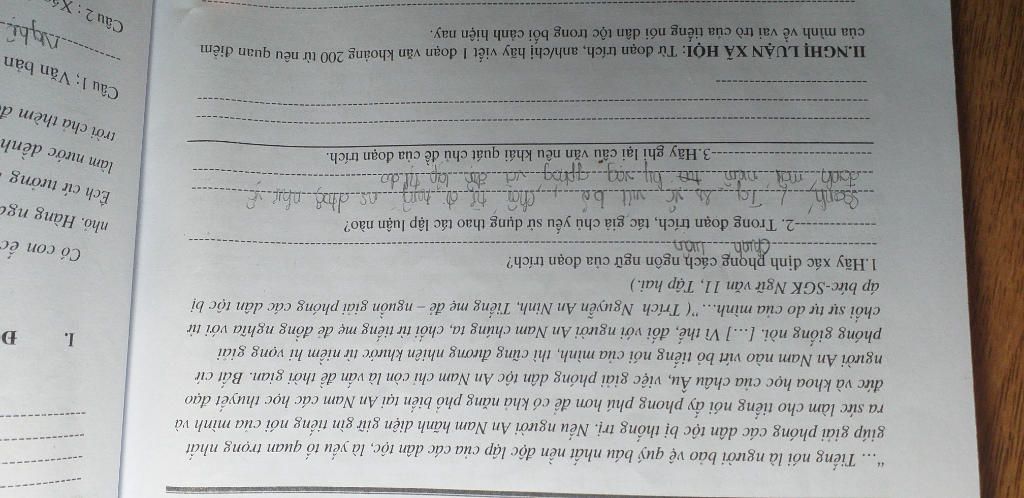 "... Tiếng nói là người bảo vệ quý báu nhất nền độc lập của các dân tộc, là yếu tố quan trọng nhất
giúp giải phóng các dân tộc bị thống trị. Nếu người An Nam hãnh diện giữ gìn tiếng nói của mình và
ra sức làm cho tiếng nói ấy phong phú hơn để có khả năng phổ biến tại An Nam các học thuyết đạo
đức và khoa học của châu Âu, việc giải phóng dân tộc An Nam chỉ còn là vấn đề thời gian. Bất cứ
người An Nam nào vứt bỏ tiếng nói của mình, thì cũng đương nhiên khước từ niềm hi vọng giải
phóng giống nòi. [...] Vì thế, đối với người An Nam chúng ta, chối từ tiếng mẹ đẻ đồng nghĩa với từ
chối sự tự do của mình..." ( Trích Nguyễn An Ninh, Tiếng mẹ đẻ – nguồn giải phóng các dân tộc bị
áp bức-SGK Ngữ văn 11, Tập hai.)
1.Hãy xác định phong cách ngôn ngữ của đoạn trích?
Chính luận
2. Trong đoạn trích, tác giả chủ yếu sử dụng thao tác lập luận nào?
3.Hãy ghi lại câu văn nêu khái quát chủ đề của đoạn trích.
II.NGHỊ LUẬN XÃ HỘI: Từ đoạn trích, anh/chị hãy viết 1 đoạn văn khoảng 200 từ nêu quan điểm
của mình về vai trò của tiếng nói dân tộc trong bối cảnh hiện nay.
I. Đ
Có con ế
nhỏ. Hàng ng
Ếch cứ tưởng
làm nước dềnh
trời chả thèm đ
Câu 1: Văn bản
Nghị
Câu 2 : Xá